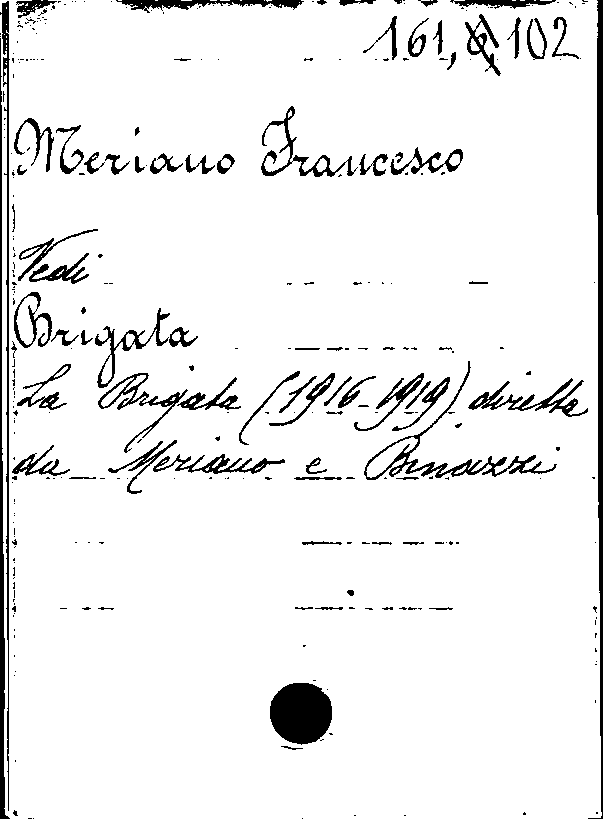 161, 102
Meriano Francesco
Vedi
Brigata
La Brigata (1916-1919) diretta
da Meriano e Binazzi